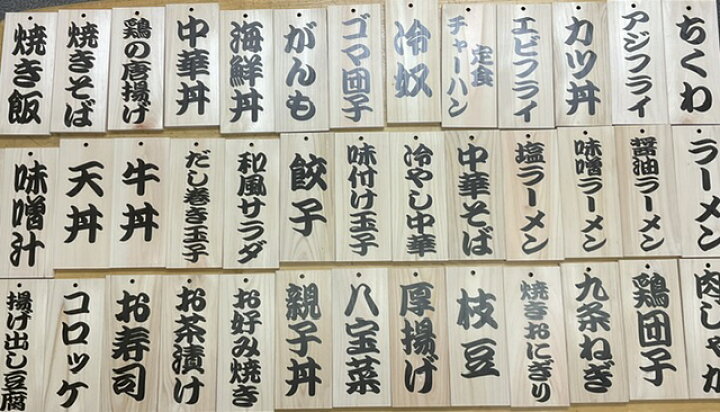 ちくわ
アジフライ
カツ丼
エビフライ
定食
チャーハン
冷奴
ゴマ団子
がんも
海鮮丼
中華丼
鶏の唐揚げ
焼きそば
焼き飯
ラーメン
醤油ラーメン
味噌ラーメン
塩ラーメン
中華そば
冷やし中華
味付け玉子
餃子
和風サラダ
だし巻き玉子
牛丼
天丼
味噌汁
肉じゃが
鶏団子
九条ねぎ
焼きおにぎり
枝豆
厚揚げ
八宝菜
親子丼
お好み焼き
お茶漬け
お寿司
コロッケ
揚げ出し豆腐